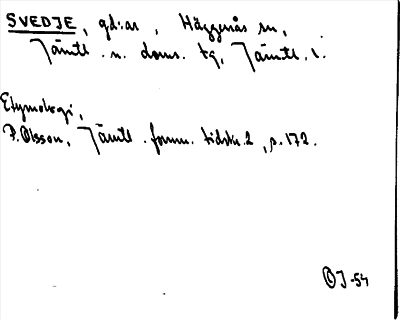 SVEDJE, gd:ar, Häggenås sn,
Jämtl. n. doms. tg, Jämtl. l.
Etymologi,
P. Olsson, Jämtl. fornm. tidskr. 2, s. 172.
OJ-54